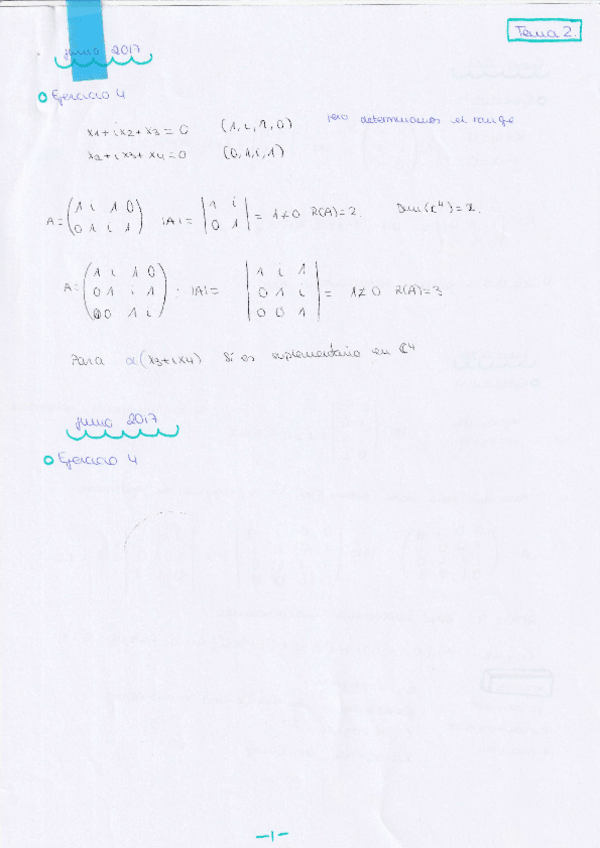 Tema 2.
junio 2017
Ejercicio 4
x1 + ix2 + x3 = 0 (1, i, 1, 0) 1ero determinamos el rango
x2 + ix3 + x4 = 0 (0, 1, i, 1)
A = (1 i 1 0
0 1 i 1) |A| = |1 i
0 1| = 1 ≠ 0 R(A) = 2.
A = (1 i 1 0
0 1 i 1
0 0 1 i) |A| = |1 i 1
0 1 i
0 0 1| = 1 ≠ 0 R(A) = 3
Para α(x3 + ix4) si es suplementario en ℂ4
junio 2017
Ejercicio 4
-1-